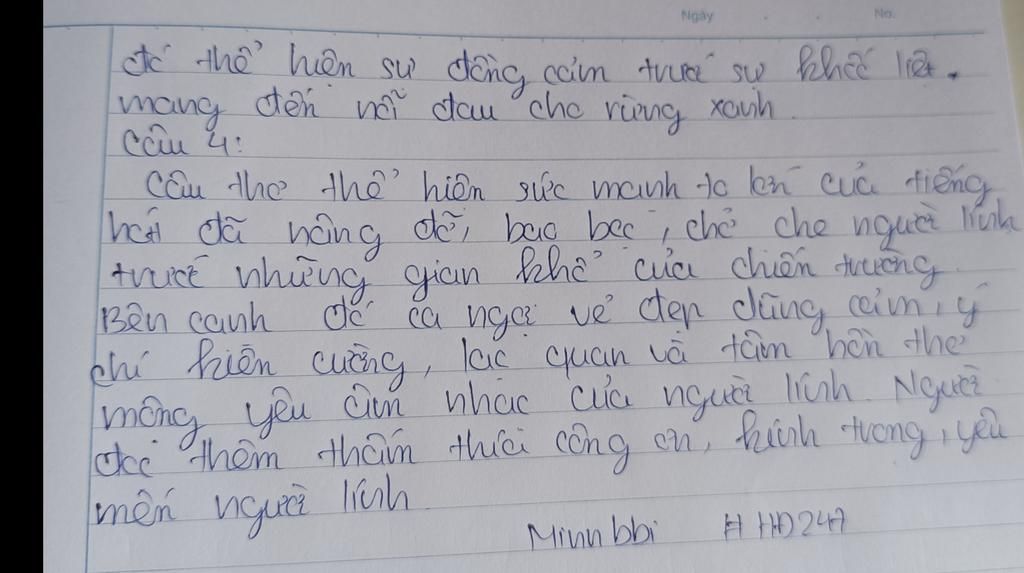 Ngày . . No.
đó thể hiện sự đồng cảm trước sự khốc liệt.
mang đến nỗi đau cho rừng xanh.
Câu 4:
Câu thơ thể hiện sức mạnh to lớn của tiếng
hát đã nâng đỡ, bao bọc, chở che người lính
trước những gian khổ của chiến trường.
Bên cạnh đó ca ngợi vẻ đẹp dũng cảm, ý
chí kiên cường, lạc quan và tâm hồn thơ
mộng yêu âm nhạc của người lính. Người
đọc thêm thấm thía công ơn, kính trọng, yêu
mến người lính.
Minh bbi HHD247